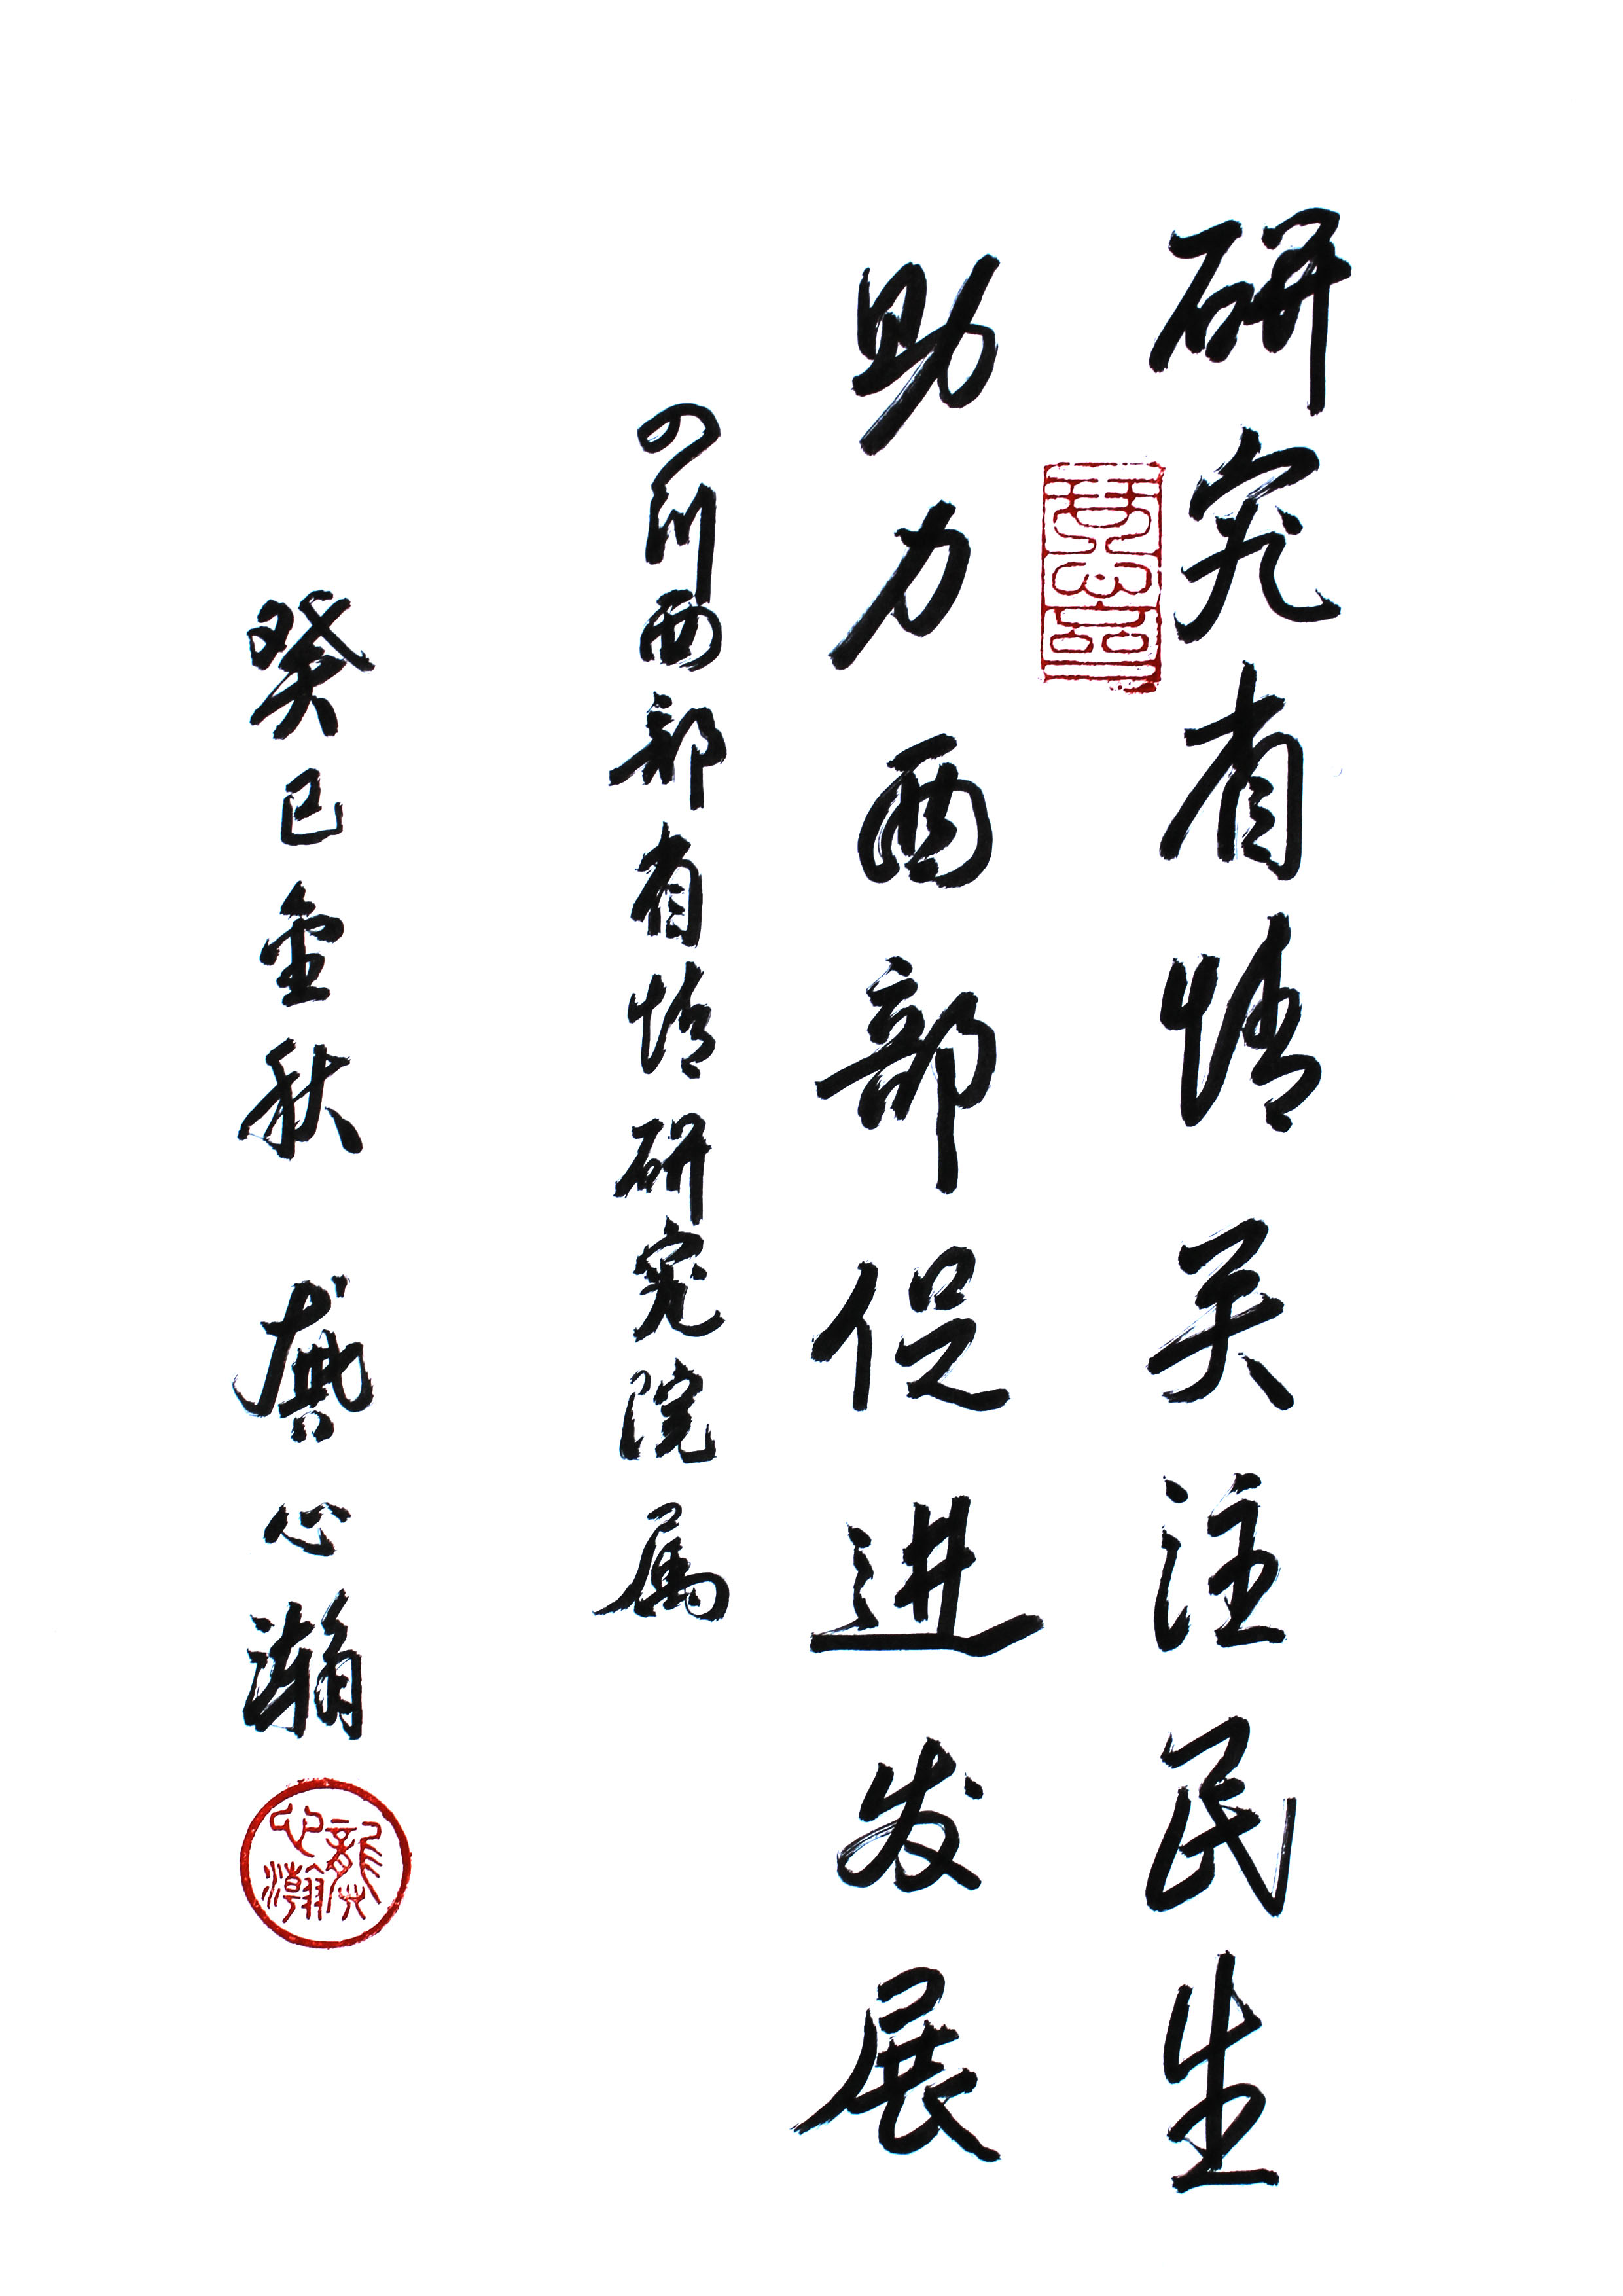 研究有情关注民生
助力西部促进发展
四川西部有情研究院属
癸巳金秋 龚心瀚
龔心瀚